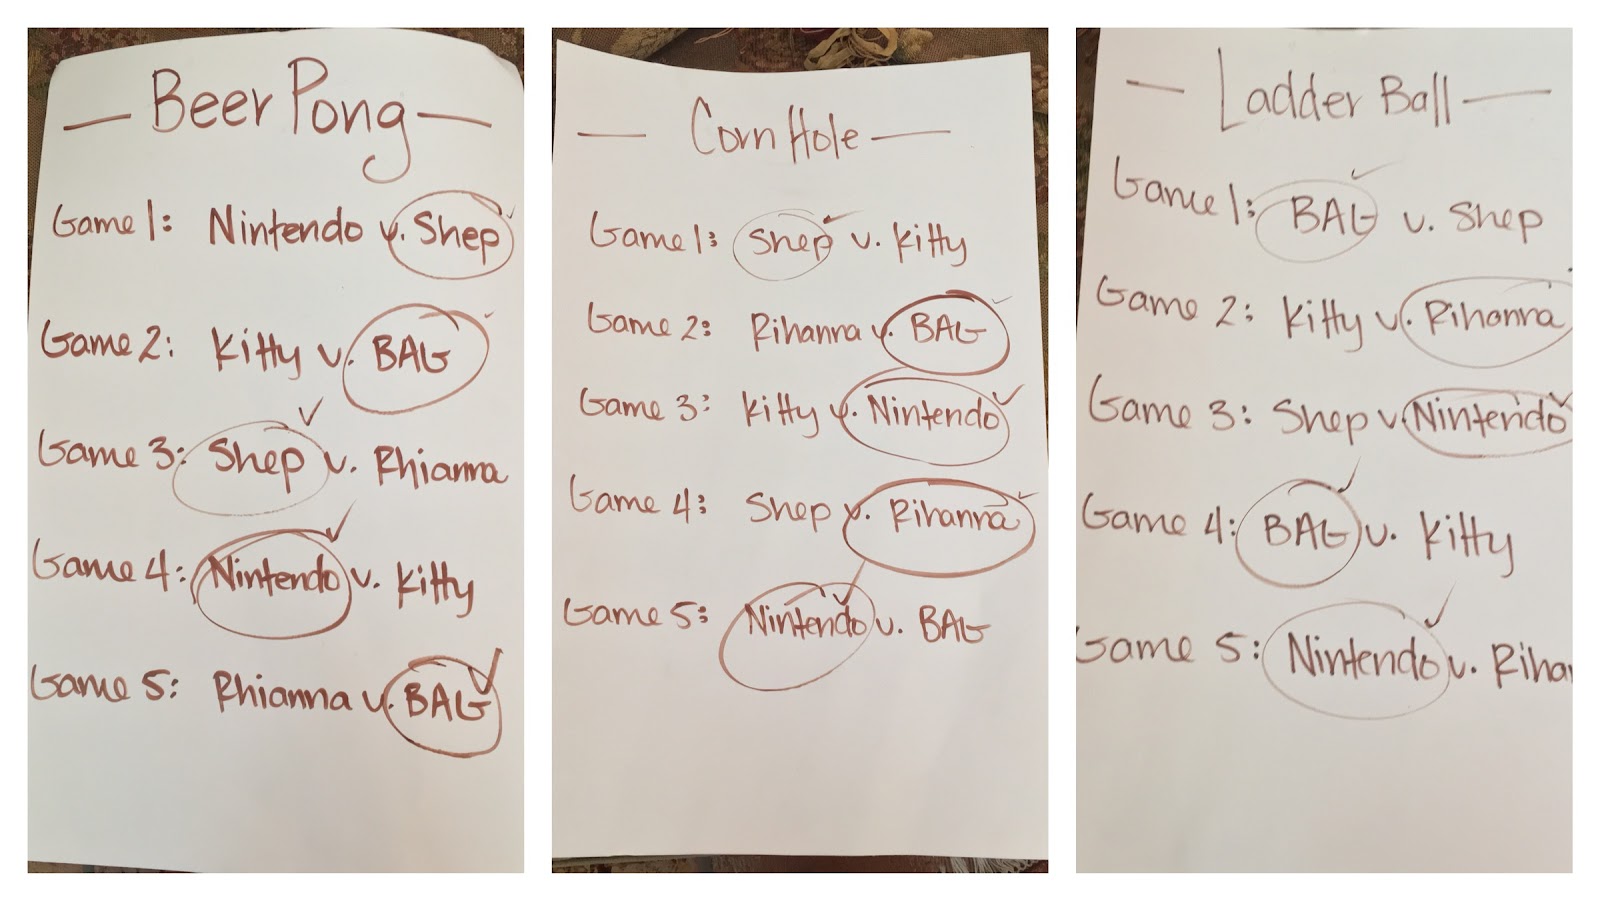 — Beer Pong —
Game 1: Nintendo v. Shep
Game 2: Kitty v. BAG
Game 3: Shep v. Rhianna
Game 4: Nintendo v. Kitty
Game 5: Rhianna v. BAG
— Corn Hole —
Game 1: Shep v. Kitty
Game 2: Rihanna v. BAG
Game 3: Kitty v. Nintendo
Game 4: Shep v. Rihanna
Game 5: Nintendo v. BAG
— Ladder Ball —
Game 1: BAG v. Shep
Game 2: Kitty v. Rihanna
Game 3: Shep v. Nintendo
Game 4: BAG v. Kitty
Game 5: Nintendo v. Rihan